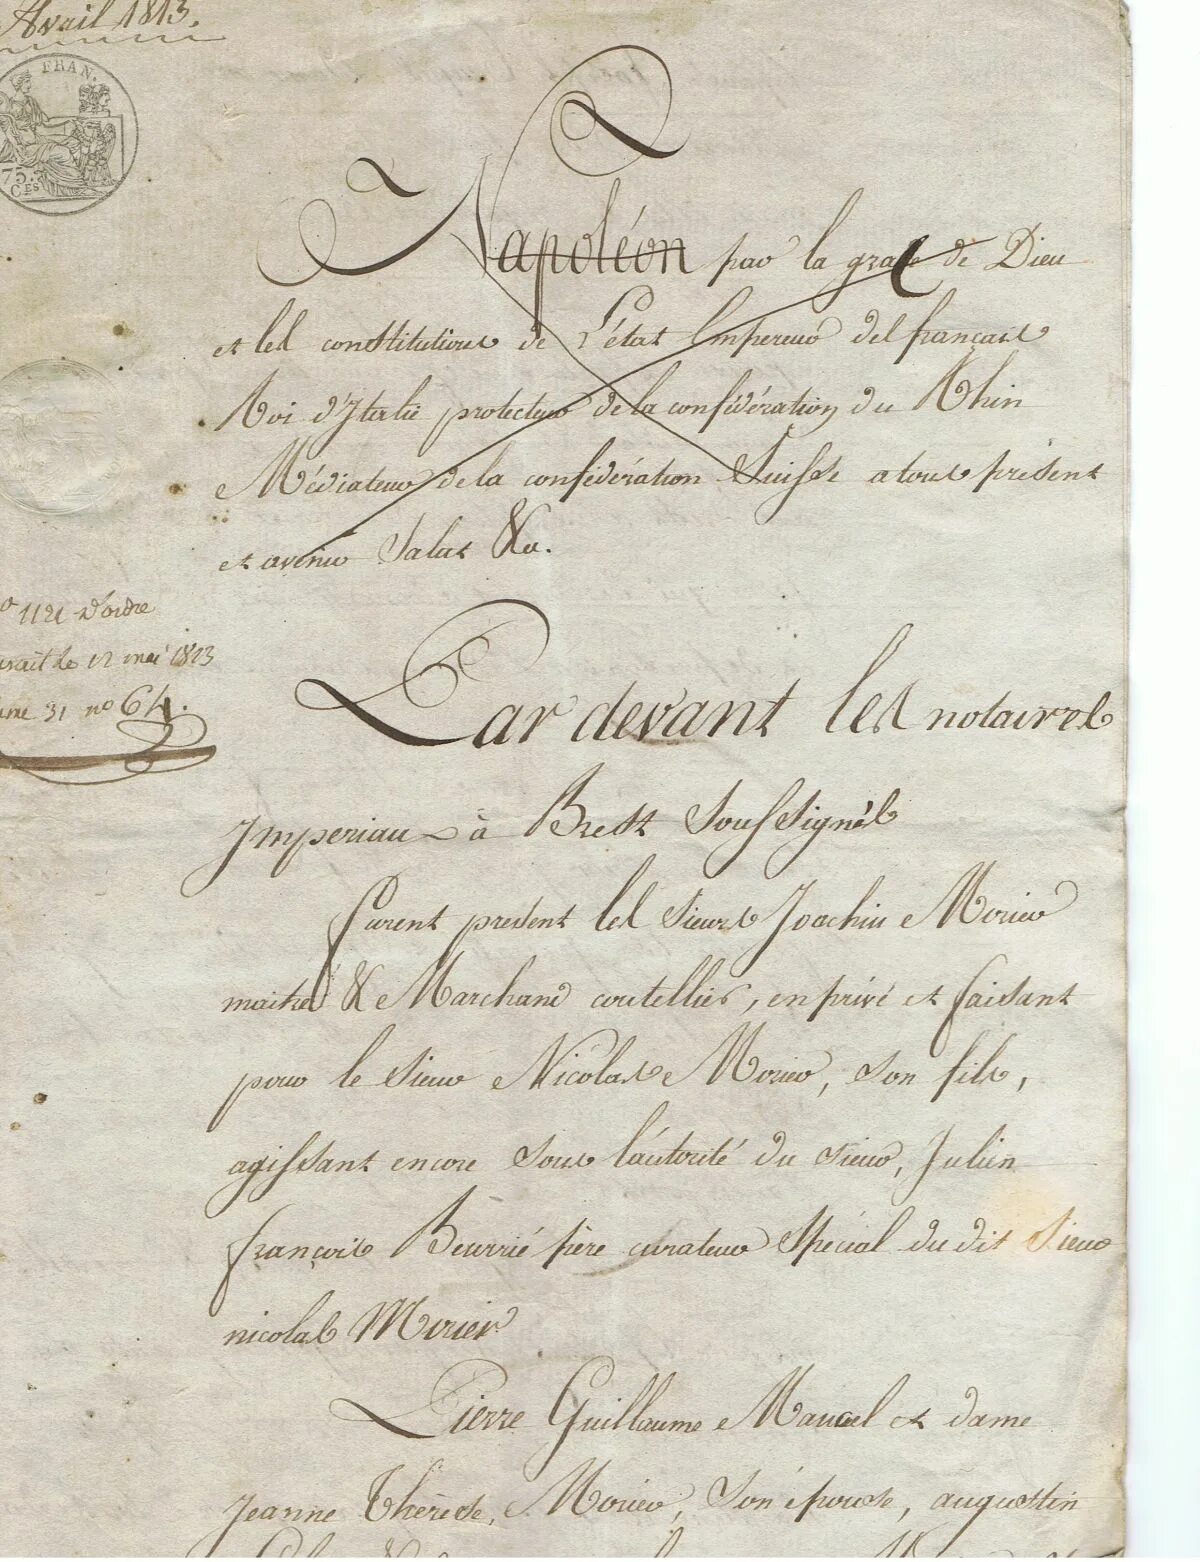 Avril 1813.
FRAN.
75.
C.ES
Napoléon par la grace de Dieu
et les constitutions de L'état Empereur des français
Roi d'Italie protecteur de la confédération du Rhin
Médiateur de la confédération Suisse a tous présent
et avenir Salut &a.
1121 d'ordre
le 12 mai 1813
31 no 64.
Par devant les notaires
Imperiaux à Brest Soussignés
furent present les Sieurs Joachim Morier
maitre & Marchand coutellier, en privé et faisant
pour le Sieur Nicolas Morier, Son fils,
agissant encore Sous l'autorité du Sieur, Julien
françois Beurrié père curateur Spécial du dit Sieur
nicolas Morier
Pierre Guillaume Mancel et dame
Jeanne Thérése, Morier, Son épouse, augustin